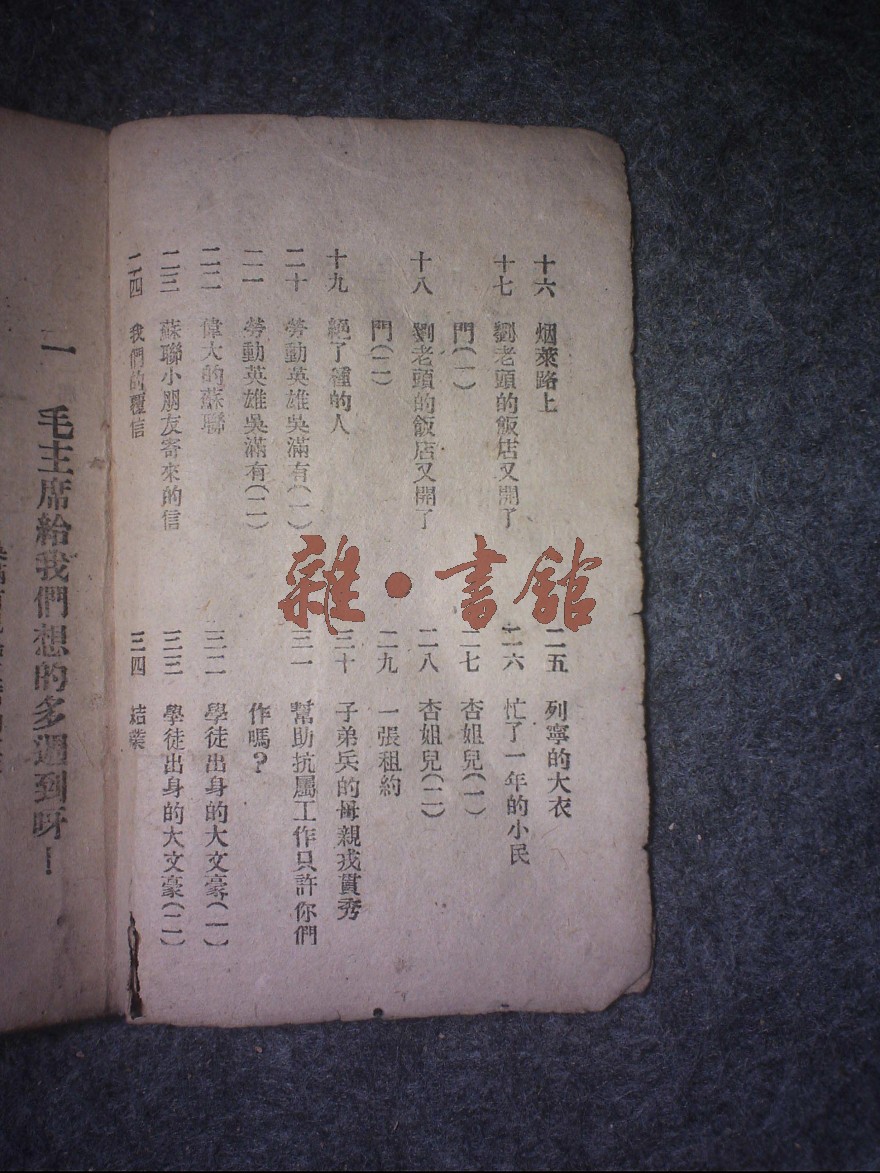 十六 烟萊路上
十七 劉老頭的飯店又開了
門(一)
十八 劉老頭的飯店又開了
門(二)
十九 絕了種的人
二十 勞動英雄吳滿有(一)
二一 勞動英雄吳滿有(二)
二二 偉大的蘇聯
二三 蘇聯小朋友寄來的信
二四 我們的
信
二五 列寧的大衣
二六 忙了一年的小民
二七 杏姐兒(一)
二八 杏姐兒(二)
二九 一張租約
三十 子弟兵的母親戎貫秀
三一 幫助抗屬工作只許你們
作嗎?
三二 學徒出身的大文豪(一)
三三 學徒出身的大文豪(二)
三四 結業
雜·書館
一 毛主席給我們想的多週到呀!